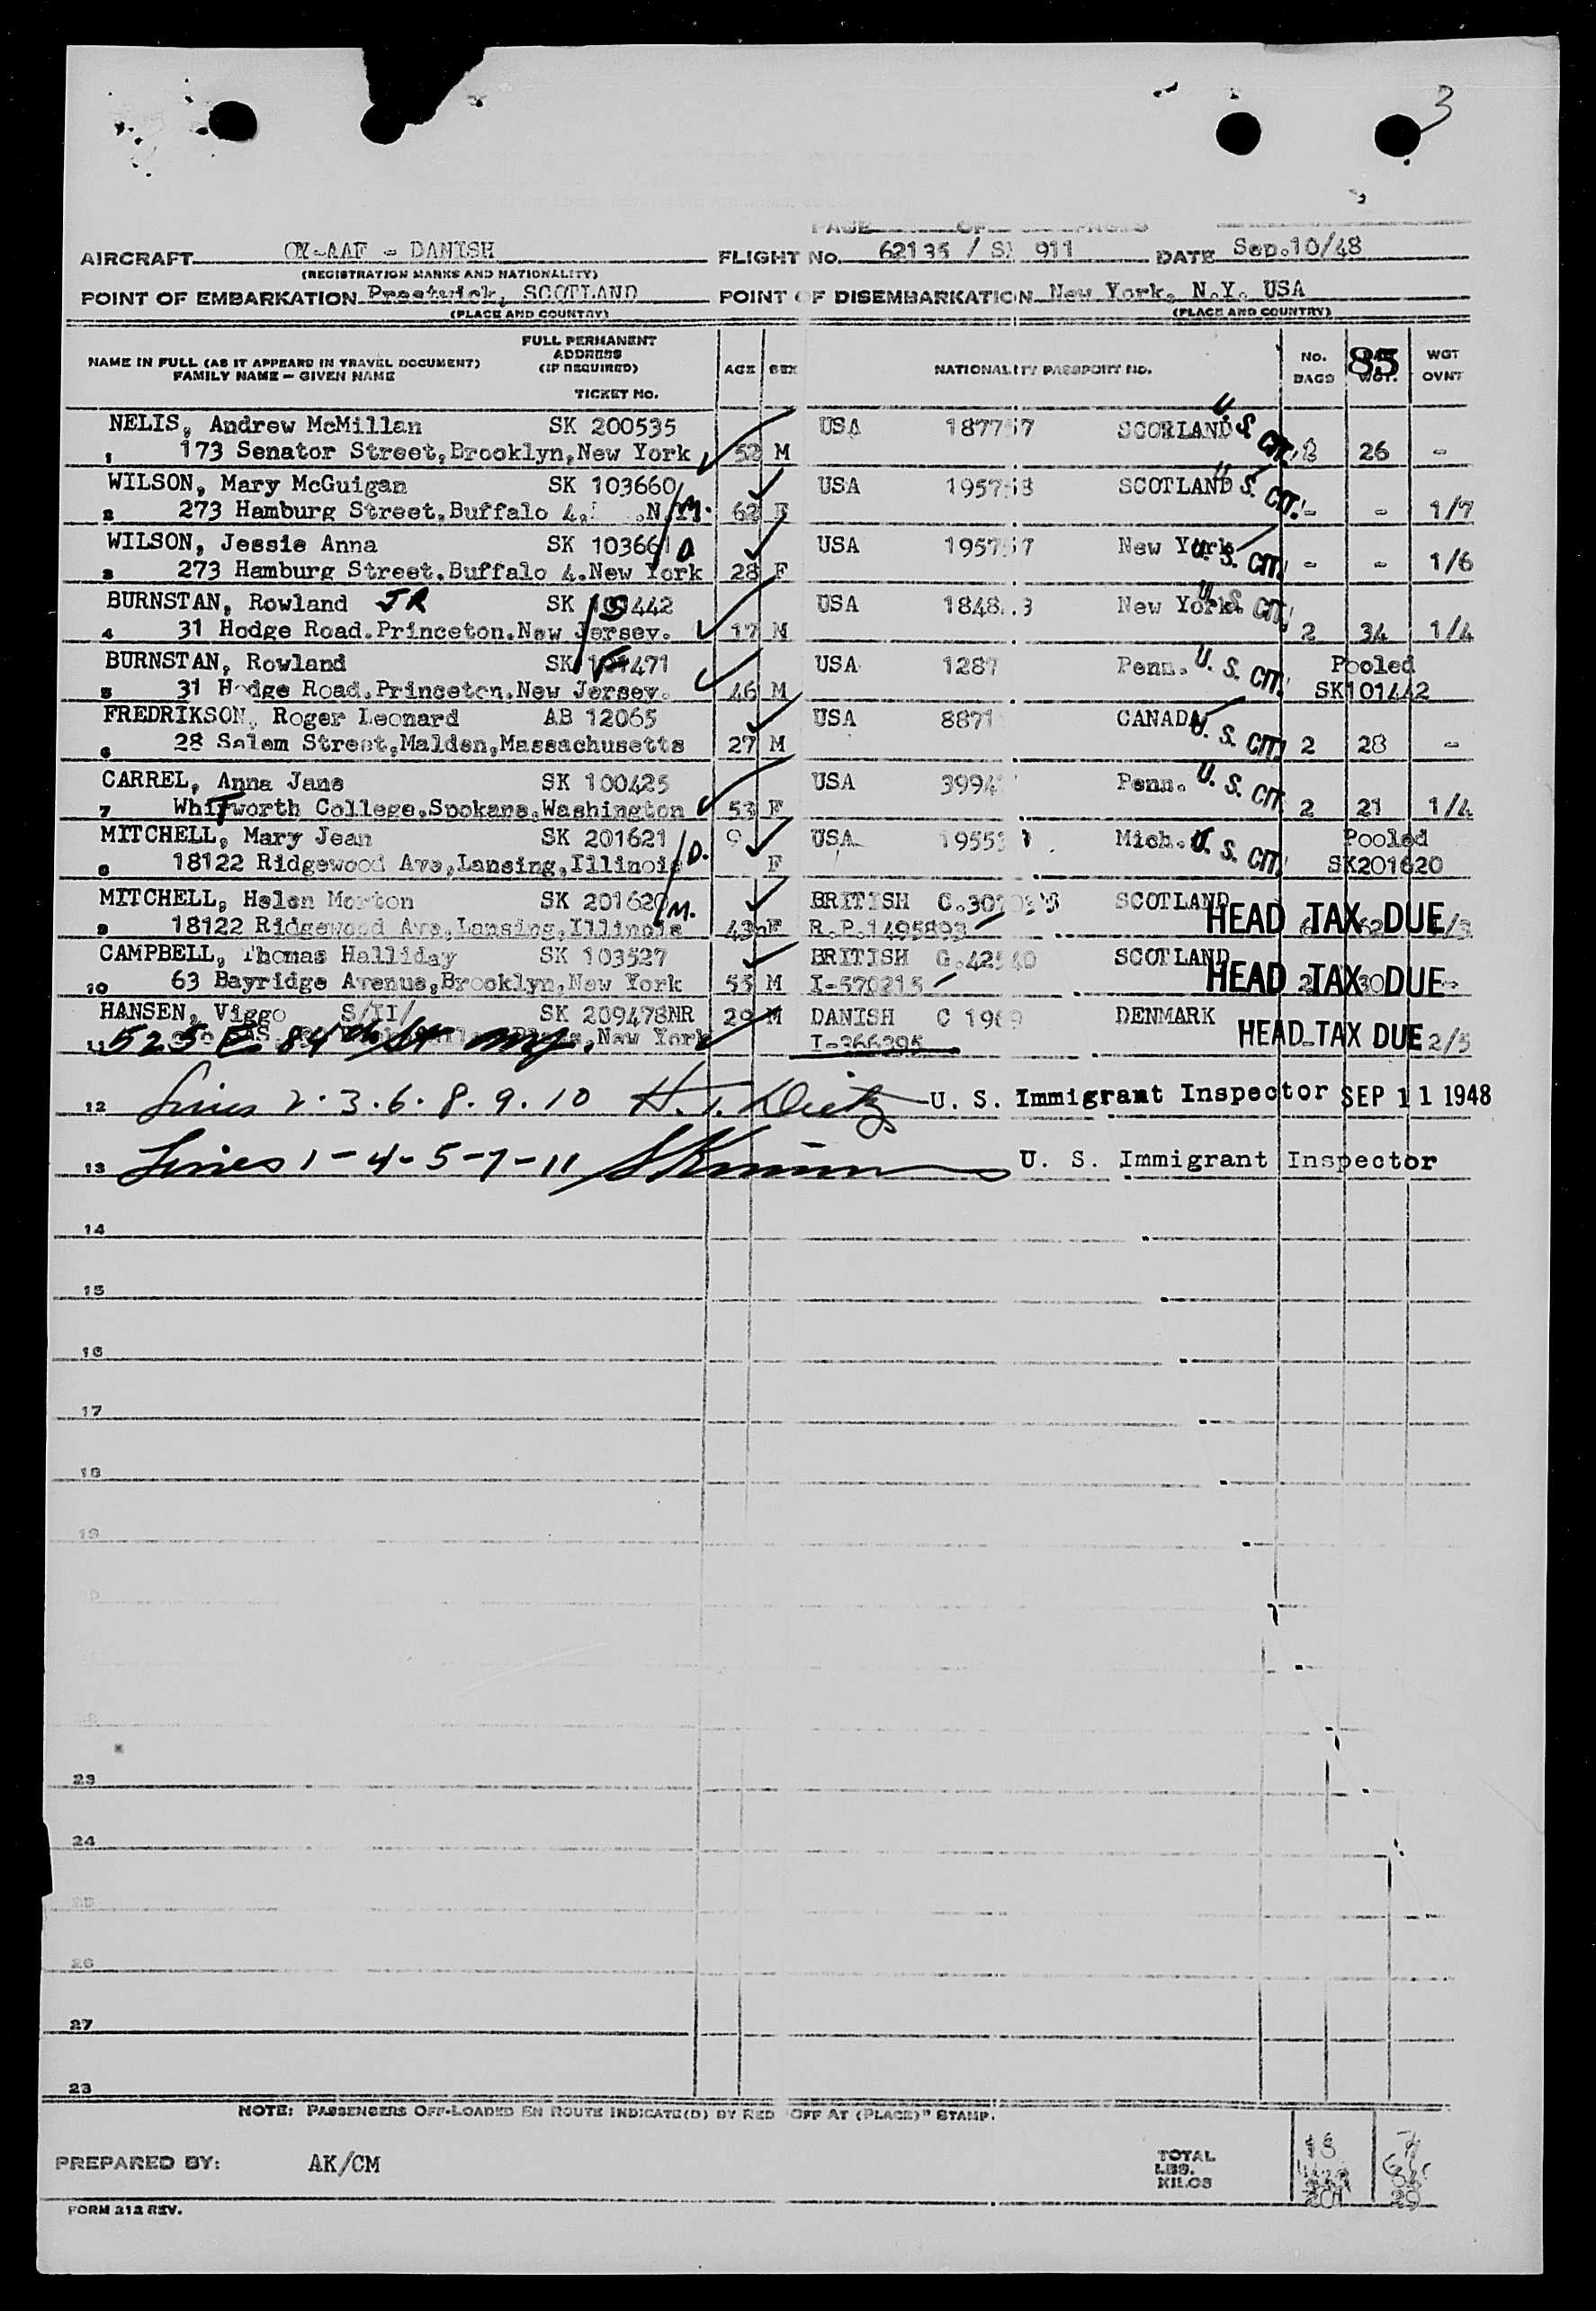 3
PAGE OF PAGES
AIRCRAFT OY-AAF - DANISH FLIGHT No. 62135 / 911 DATE Sep.10/48
(REGISTRATION MARKS AND NATIONALITY)
POINT OF EMBARKATION Prestwick, SCOTLAND POINT OF DISEMBARKATION New York, N.Y. USA
(PLACE AND COUNTRY) (PLACE AND COUNTRY)
NAME IN FULL (AS IT APPEARS IN TRAVEL DOCUMENT) FAMILY NAME — GIVEN NAME FULL PERMANENT ADDRESS (IF REQUIRED) TICKET NO. AGE SEX NATIONALITY PASSPORT NO. No. BAGS 85 WGT. WGT OVNT
NELIS, Andrew McMillan SK 200535 USA 1877 7 SCOTLAND U. S. CIT.
1 173 Senator Street,Brooklyn,New York 52 M 2 26 -
WILSON, Mary McGuigan SK 103660 USA 195758 SCOTLAND U. S. CIT.
2 273 Hamburg Street,Buffalo 4, N.Y. M. 62 F - - 1/7
WILSON, Jessie Anna SK 103661 D USA 195757 New York U. S. CIT.
3 273 Hamburg Street.Buffalo 4.New York 28 F - - 1/6
BURNSTAN, Rowland JR SK 442 S USA 1848 3 New York. U. S. CIT.
4 31 Hodge Road.Princeton.New Jersey. 17 M 2 34 1/4
BURNSTAN, Rowland SK 101471 F USA 1287 Penn. U. S. CIT. Pooled
5 31 Hodge Road.Princeton,New Jersey. 46 M SK101442
FREDRIKSON, Roger Leonard AB 12065 USA 8871 CANADA U. S. CIT.
6 28 Salem Street,Malden,Massachusetts 27 M 2 28 -
CARREL, Anna Jane SK 100425 USA 3994 Penn. U. S. CIT.
7 Whitworth College,Spokane,Washington 53 F 2 21 1/4
MITCHELL, Mary Jean SK 201621 D. 9 USA 1955 Mich. U. S. CIT. Pooled
8 18122 Ridgewood Ave,Lansing,Illinois F SK201620
MITCHELL, Helen Morton SK 201620 M. BRITISH C.30 SCOTLAND HEAD TAX DUE
9 18122 Ridgewood Ave,Lansing,Illinois 43 F R.P.1495893 62 /3
CAMPBELL, Thomas Halliday SK 103527 BRITISH C.425 40 SCOTLAND HEAD TAX DUE
10 63 Bayridge Avenue,Brooklyn,New York 55 M I-570215 2 30 -
HANSEN, Viggo S/II/ SK 209478NR 29 M DANISH C 196 DENMARK HEAD TAX DUE
11 525 E. 84th St NY. New York I-366395 2/5
12 Lines 2.3.6.8.9.10 H.T. Dietz U. S. Immigrant Inspector SEP 11 1948
13 Lines 1-4-5-7-11 U. S. Immigrant Inspector
14
15
16
17
18
19
23
24
26
27
28
NOTE: PASSENGERS OFF-LOADED EN ROUTE INDICATE(D) BY RED "OFF AT (PLACE)" STAMP.
PREPARED BY: AK/CM TOTAL LBS. KILOS
FORM 212 REV.